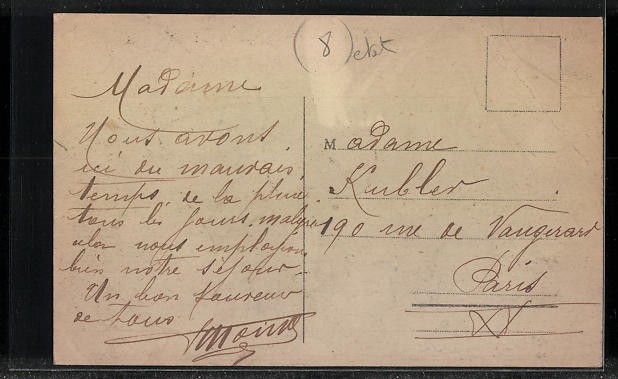 8
Madame
Nous avons
ici du mauvais
temps, de la pluie
tous les jours, malgré
cela nous employons
bien notre séjour.
Un bon
de tous
Madame
Kubler
190 rue de Vaugirard
Paris
XV